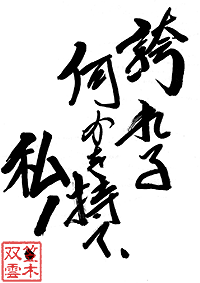 誇れる
何かを持て、
私!
双雲